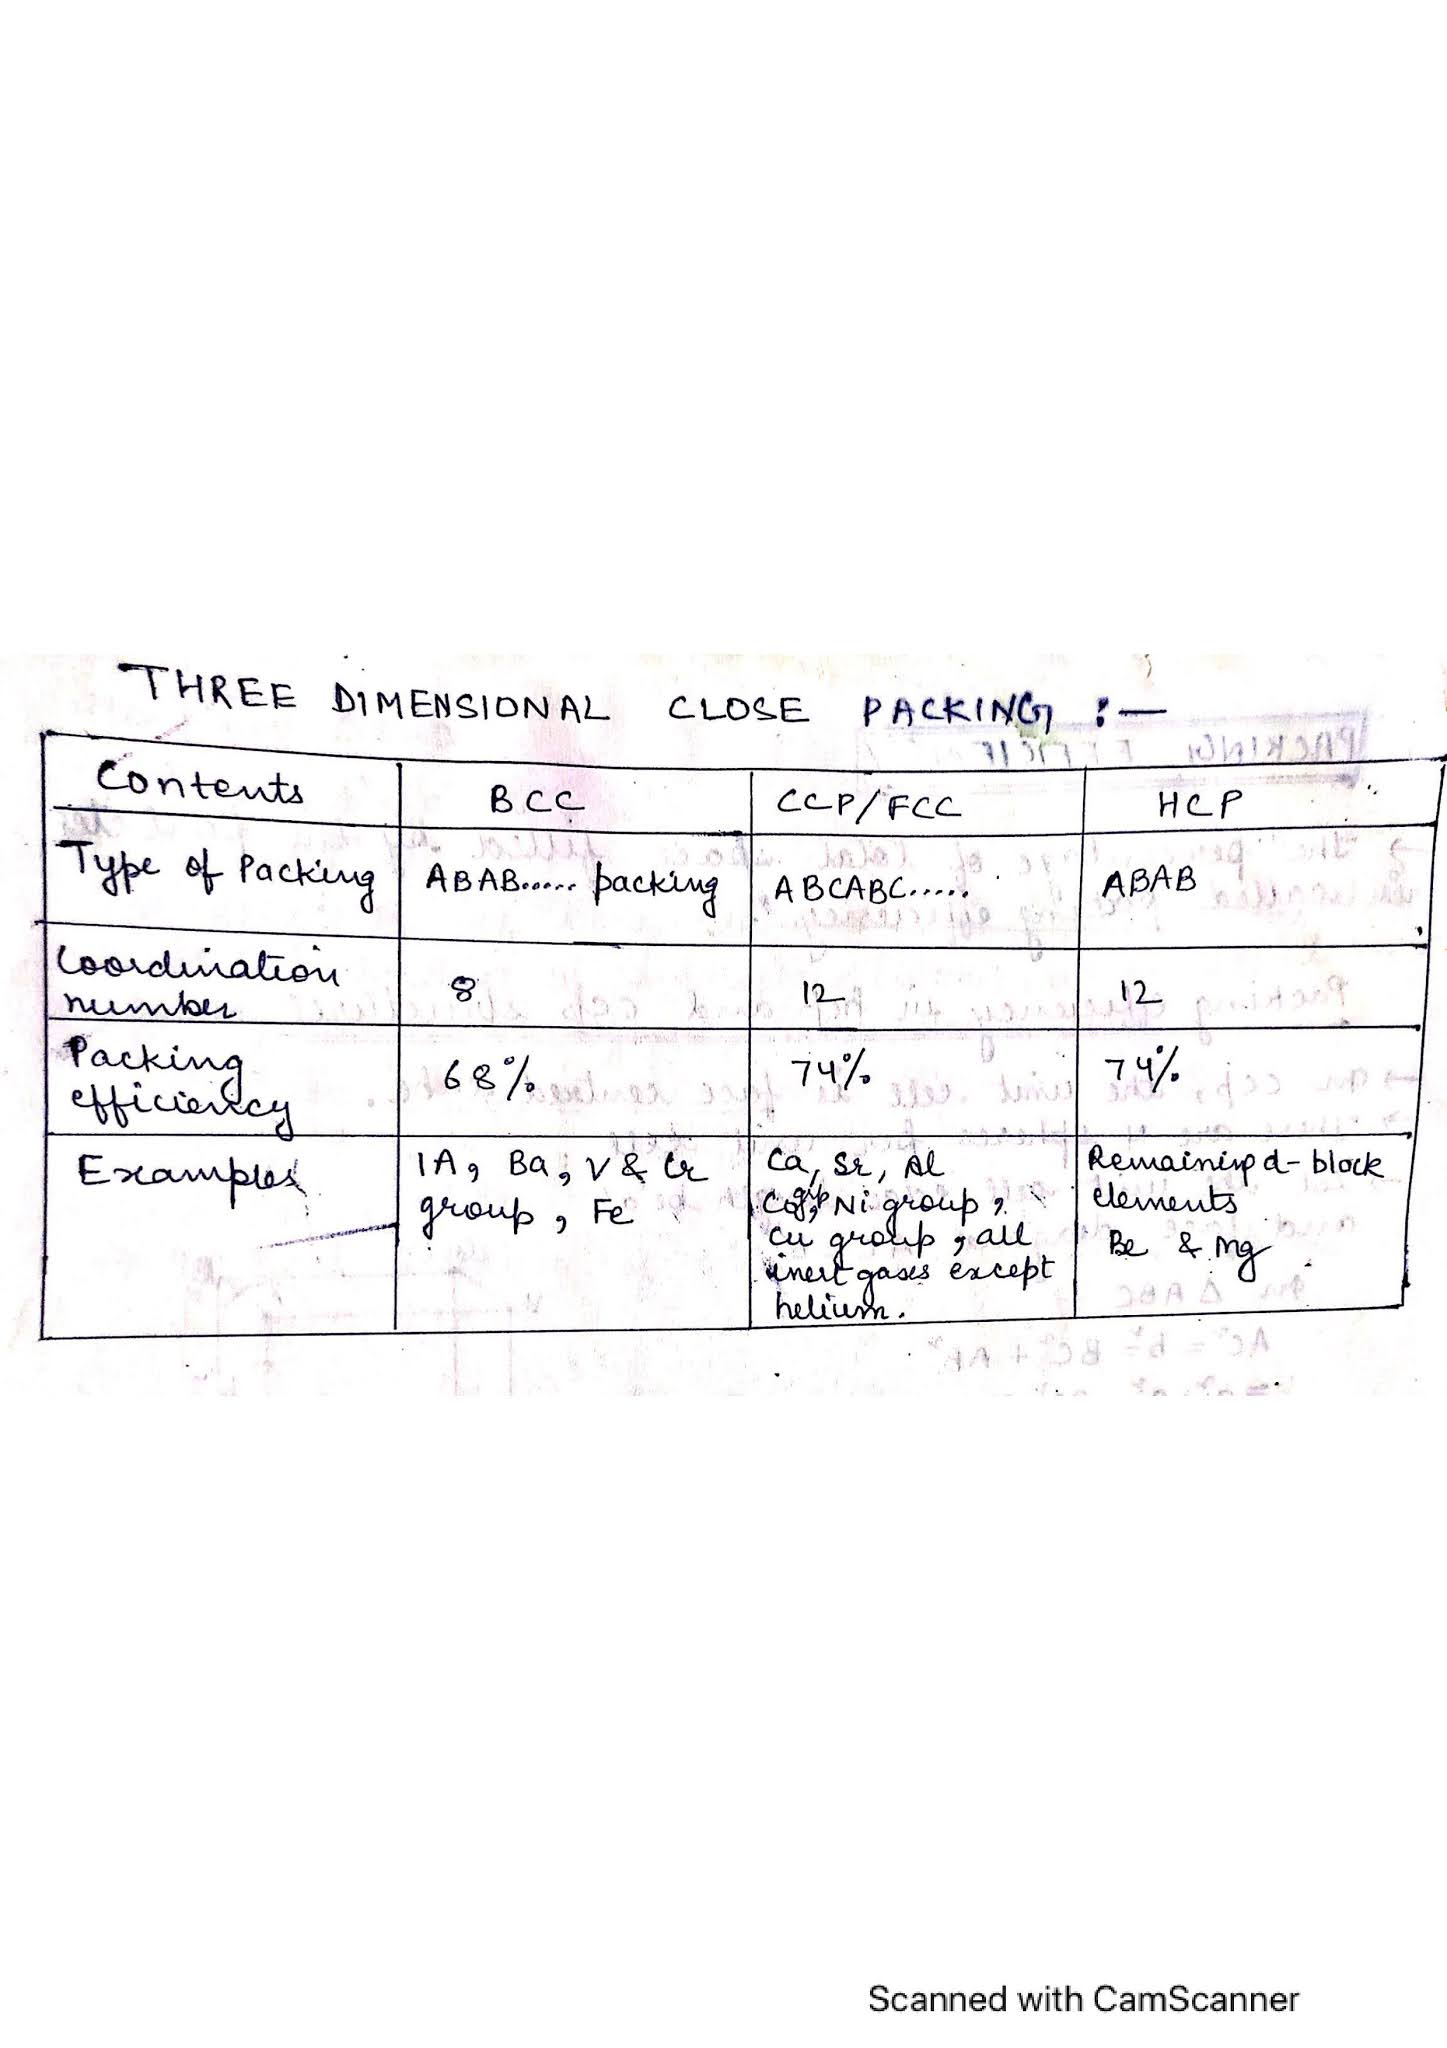 THREE DIMENSIONAL CLOSE PACKING :—
Contents BCC CCP/FCC HCP
Type of Packing ABAB..... packing ABCABC..... ABAB
Coordination number 8 12 12
Packing efficiency 68% 74% 74%
Examples
IA, Ba, V & Cr
group, Fe
Ca, Sr, Al
Co grp, Ni group,
Cu group, all
inert gases except
helium.
Remaining d-block
elements
Be & Mg
Scanned with CamScanner